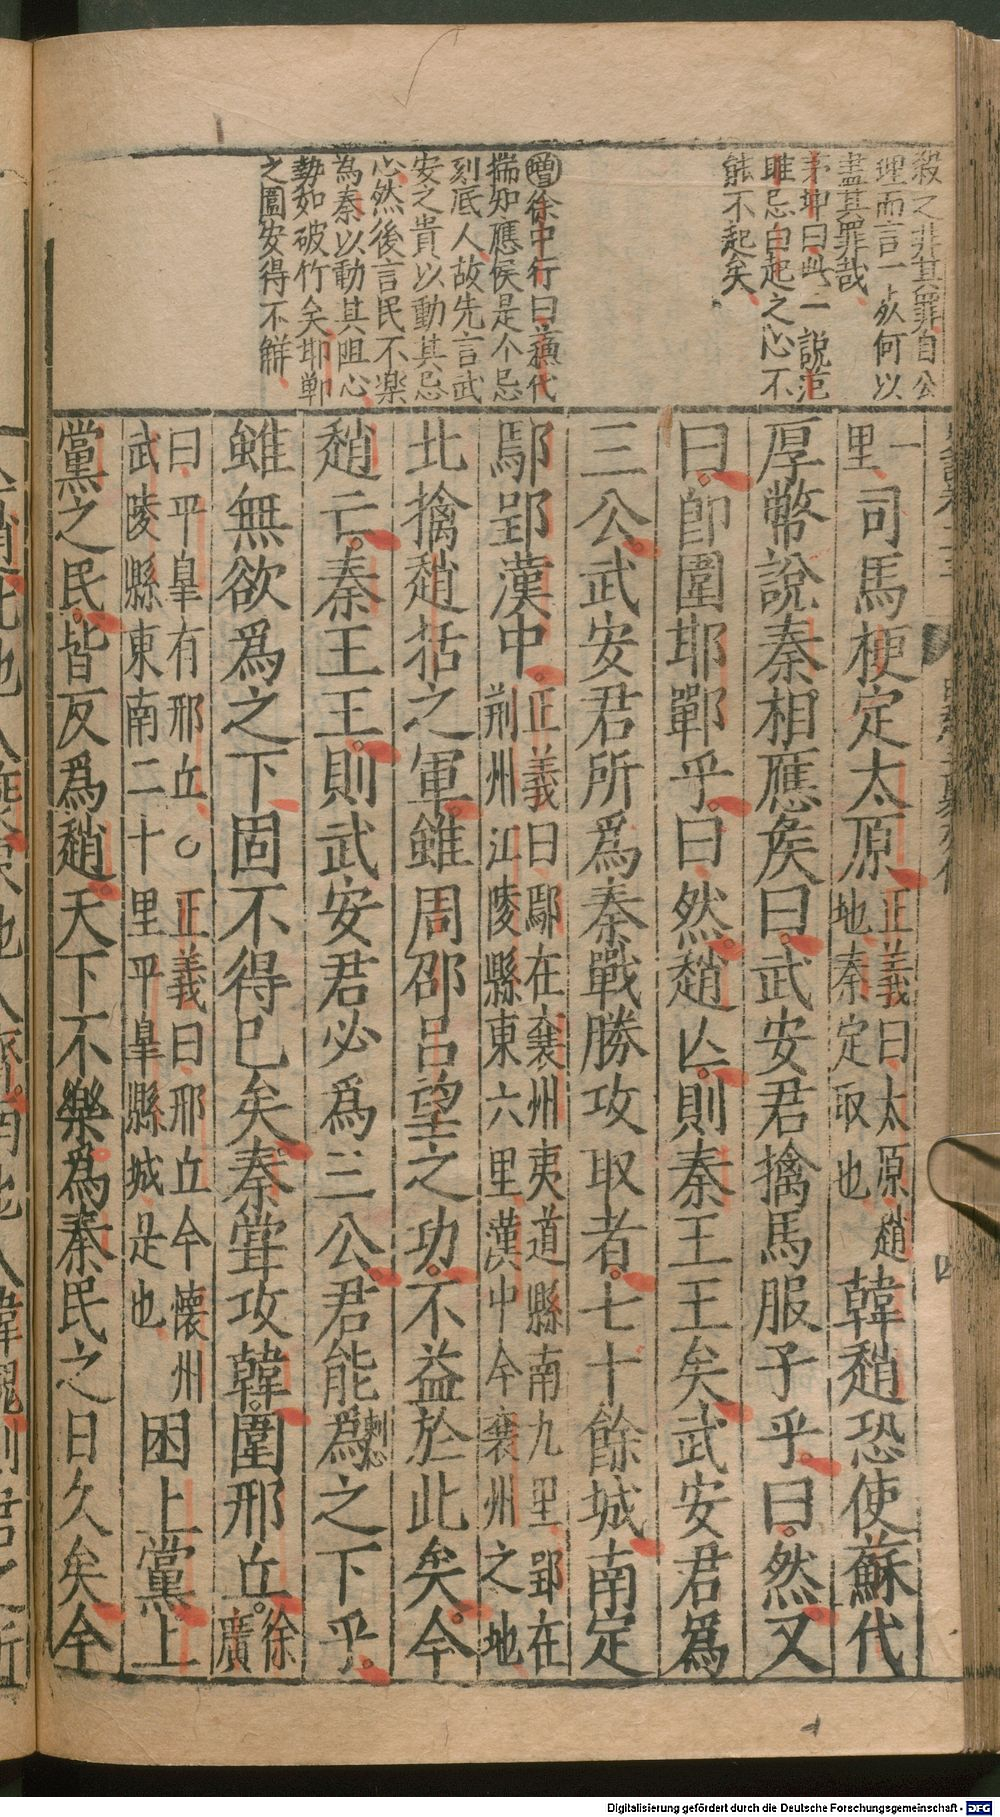 殺之非其罪自公
理而言一㱦何以
盡其罪哉
茅坤曰此一說范
雎忌白起之心不
能不起矣
增徐中行曰蘇代
揣知應侯是个忌
刻底人故先言武
安之貴以動其忌
心然後言民不樂
為秦以動其阻心
勢如破竹矣邯鄲
之圍安得不觧
一
里 司馬梗定太原
正義曰太原趙
地秦定取也
韓趙恐使蘇代
厚幣說秦相應侯曰武安君擒馬服子乎曰然又
曰卽圍邯鄲乎曰然趙亾則秦王王矣武安君爲
三公武安君所爲秦戰勝攻取者七十餘城南定
鄢郢漢中
正義曰鄢在襄州夷道縣南九里郢在
荆州江陵縣東六里漢中今襄州之地
北擒趙括之軍雖周邵呂望之功不益於此矣今
趙亡秦王王則武安君必爲三公君能爲之下乎
雖無欲爲之下固不得已矣秦甞攻韓圍邢丘
徐
廣
曰平皐有邢丘○正義曰邢丘今懷州
武陵縣東南二十里平皐縣城是也
困上黨上
黨之民皆反爲趙天下不樂爲秦民之日久矣今
四
Digitalisierung gefördert durch die Deutsche Forschungsgemeinschaft - DFG